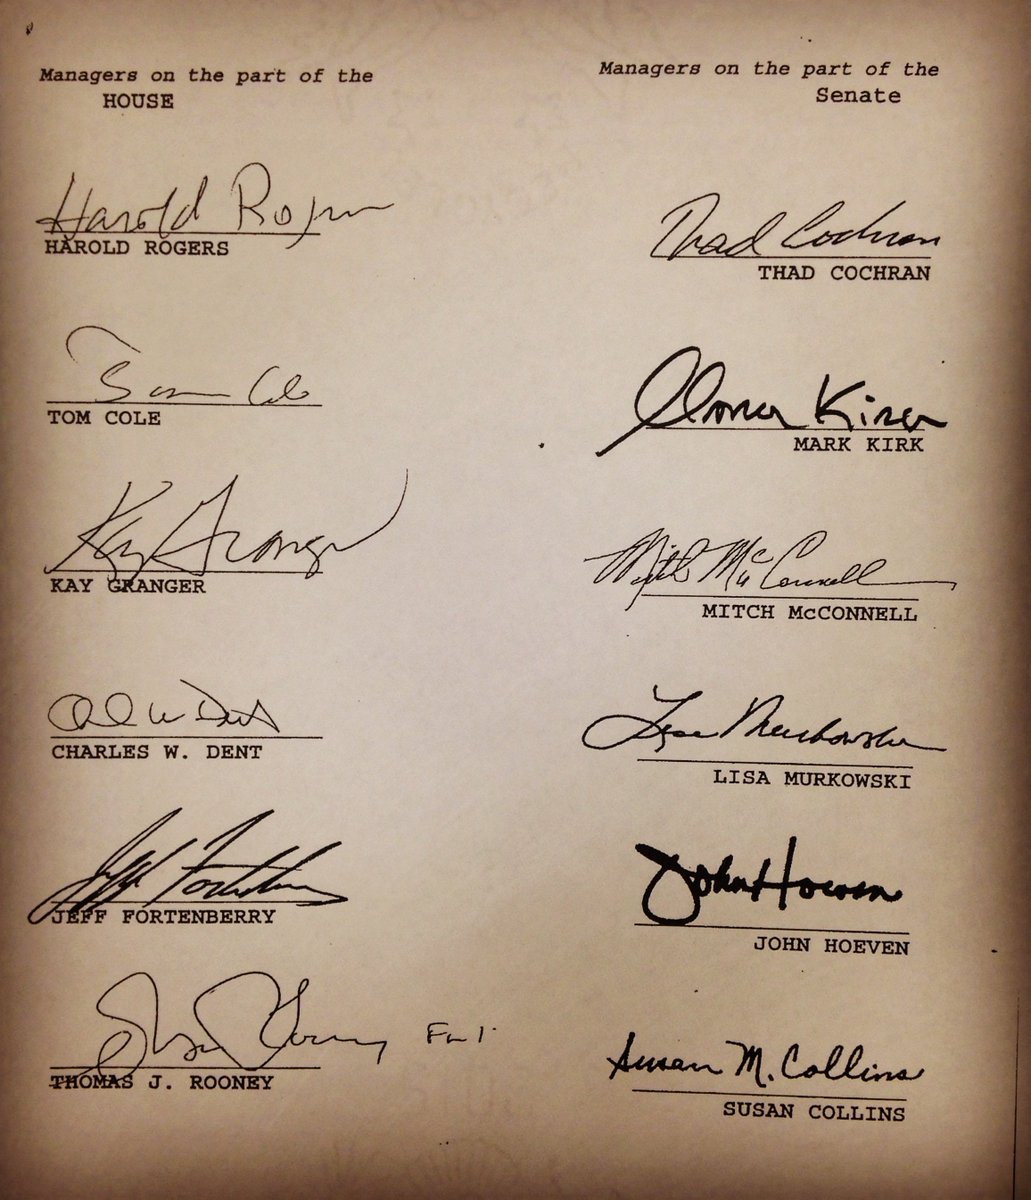 Managers on the part of the
HOUSE
Harold Rogers
HAROLD ROGERS
Tom Cole
TOM COLE
Kay Granger
KAY GRANGER
Charles W Dent
CHARLES W. DENT
Jeff Fortenberry
JEFF FORTENBERRY
Rooney
THOMAS J. ROONEY
Managers on the part of the
Senate
Thad Cochran
THAD COCHRAN
Kirk
MARK KIRK
Mitch McConnell
MITCH McCONNELL
Lisa Murkowski
LISA MURKOWSKI
John Hoeven
JOHN HOEVEN
Susan M. Collins
SUSAN COLLINS